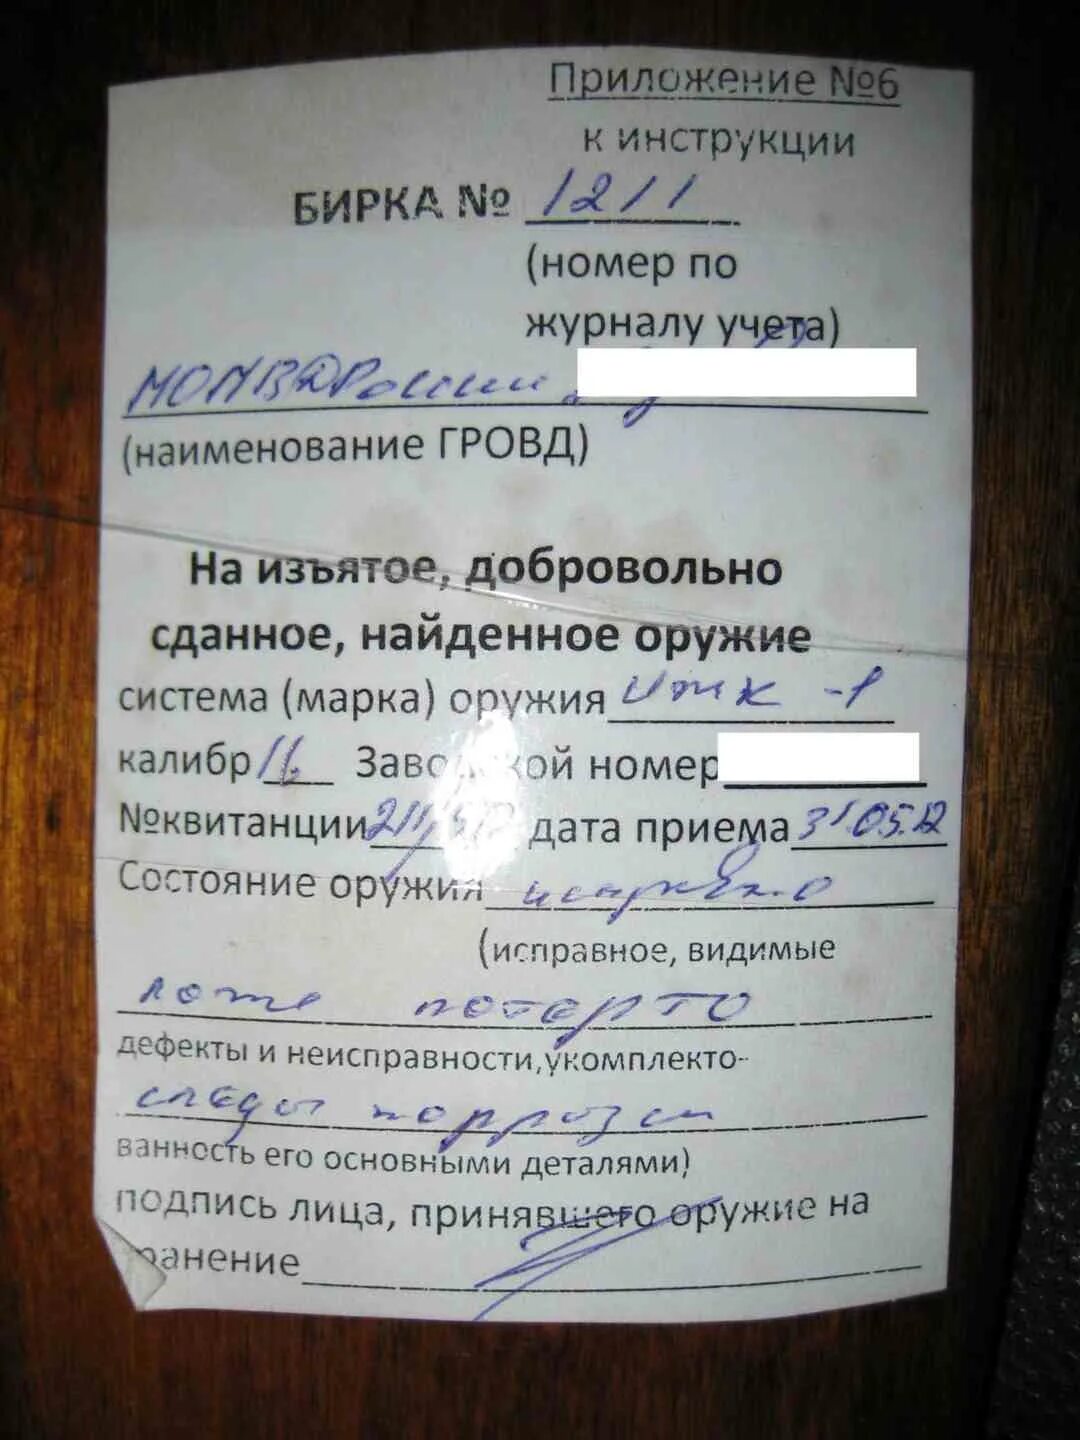 Приложение №6
к инструкции
БИРКА № 1211
(номер по
журналу учета)
МОМВД России
(наименование ГРОВД)
На изъятое, добровольно
сданное, найденное оружие
система (марка) оружия ИЖК -1
калибр 16 Заводской номер
№квитанции дата приема 31.05.12
Состояние оружия исправно
(исправное, видимые
ложе потерто
дефекты и неисправности,укомплекто-
следы коррозии
ванность его основными деталями)
подпись лица, принявшего оружие на
хранение